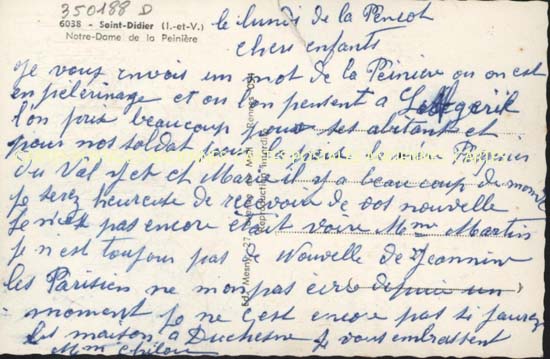 350188 D
6038 - Saint-Didier (I.-et-V.)
Notre-Dame de la Peinière
le lundi de la Pencot
chers enfants
Je vous envois un mot de la Peiniere ou on est
en pelerinage et ou l'on pensent a
l'on pris beaucoup pour ses abitant et
pour nos soldat pour la
du Val y et et Marie il y a beaucoup de monde
je serez heureuse de recevoire de vos nouvelle
Je n'est pas encore etait voire Mme Martin
je n'est toujour pas de Nouvelle de Jeannine
les Parisien ne mon pas ecris depuis un
moment je ne c'est encore pas si j'aurez
les maison a Duchesne je vous embrassent
Mme